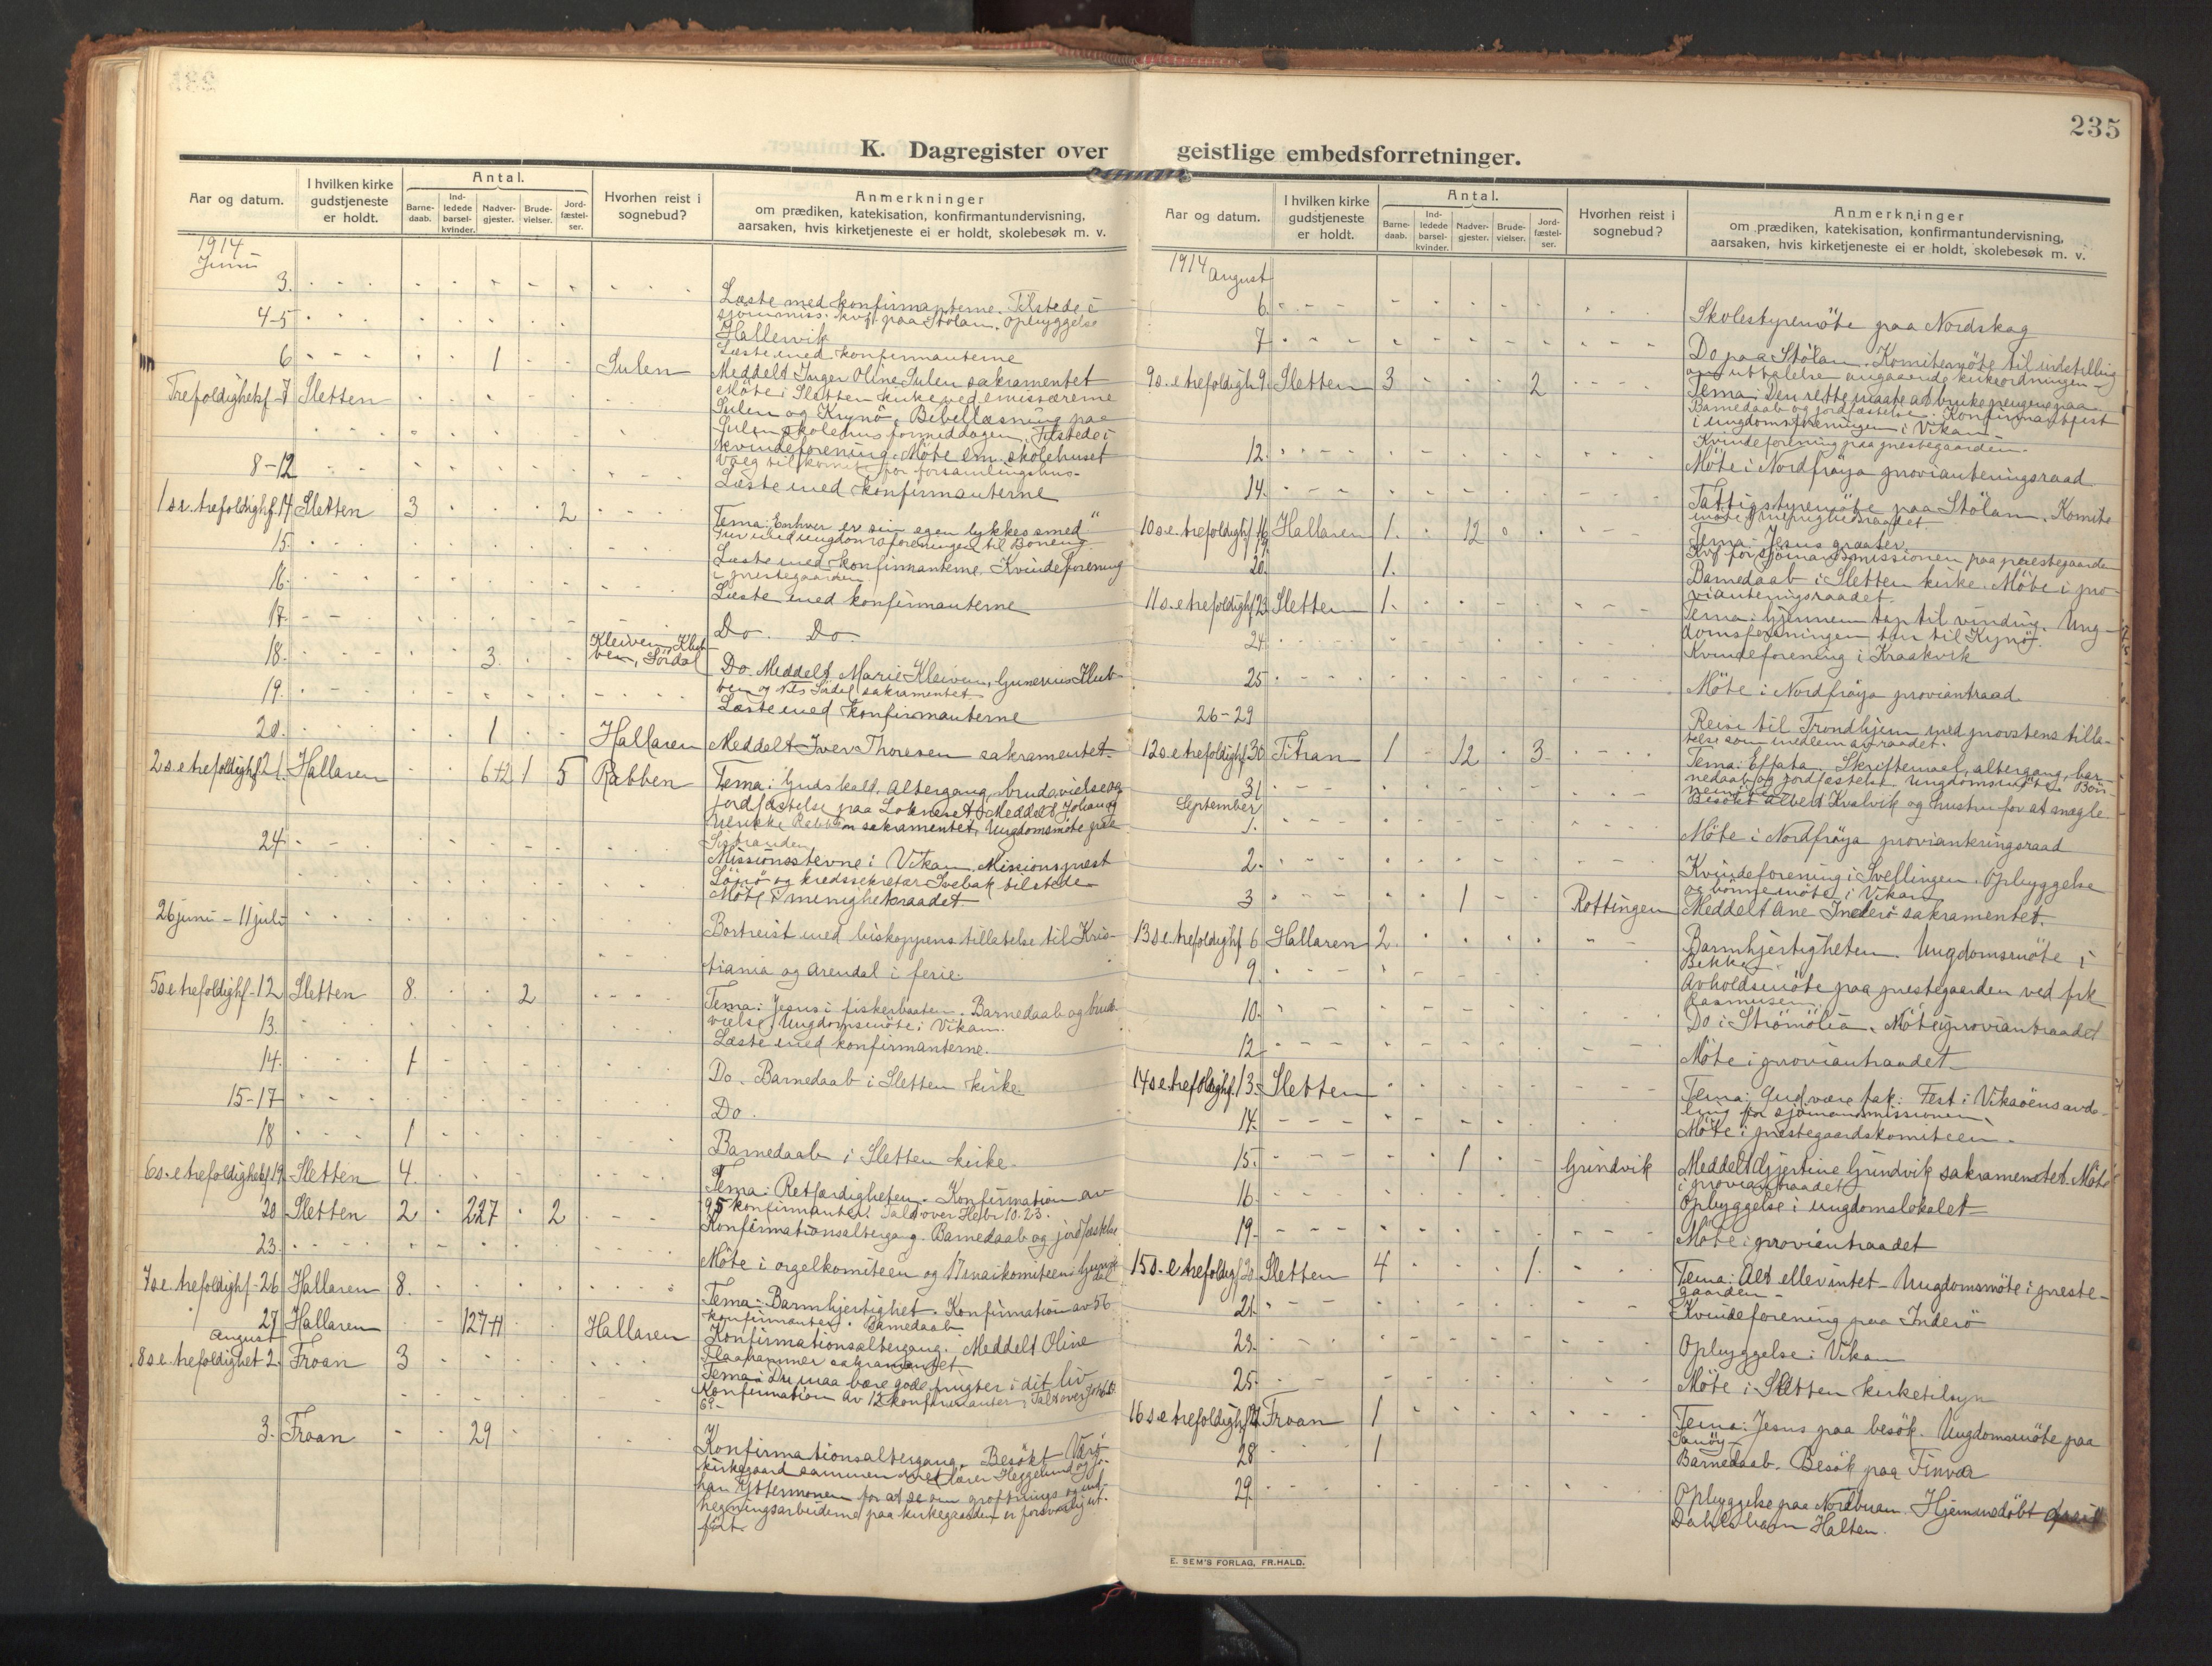 235
K. Dagregister over geistlige embedsforretninger.
Aar og datum.
I hvilken kirke gudstjeneste er holdt.
Antal.
Barne-daab.
Ind-ledede barsel-kvinder.
Nadver-gjester.
Brude-vielser.
Jord-fæstel-ser.
Hvorhen reist i sognebud?
Anmerkninger
om prædiken, katekisation, konfirmantundervisning,
aarsaken, hvis kirketjeneste ei er holdt, skolebesøk m. v.
1914
Juni
3. Læste med konfirmanterne. Tilstede i
sjømmiss. kvf. paa Stølan. Opbyggelse
4-5 Hallervik
Læste med konfirmanterne
6 1 Sulen Meddelt Inger Oline Sulen sakramentet
Trefoldighetsf - 7 Sletten Møte i Sletten kirke ved emissærerne
Sulen og Krynø. Bibellæsning paa
Sulen skolehus formiddagen. Tilstede i
kvindeforening. Møte em. skolehuset
valg til komite for forsamlingshus.
8-12 Læste med konfirmanterne
1 s.e. trefoldighf. 14 Sletten 3 2 Tema: Enhver er sin egen lykkes smed"
15. Tur med ungdomsforeningen til Boneng
Læste med konfirmanterne. Kvindeforening
i prestegaarden
16. Læste med konfirmanterne
17. Do. Do.
18. 3. Kleiven, Klub-
ben, Sørdal Do. Meddelt Marie Kleiven, Gunerius Klub-
ben og Nils Sørdal sakramentet
19. Læste med konfirmanterne
20. 1 Hallaren Meddelt Iver Thoresen sakramentet
2 s.e. trefoldighf 21. Hallaren 6+2 1 5 Rabben Tema: Guds kald. Altergang, brudevielse og
jordfæstelse paa Løkneset. Meddelt Johan og
Nerikke Rabben sakramentet, Ungdomsmøte paa
Sistranden
24 Missionsstevne i Vikan. Missionsprest
og kredssekretær Svebak tilstede
Møte i menighetsraadet
26 juni - 11 juli Bortreist med biskoppens tillatelse til Kris-
tiania og Arendal i ferie.
5 s.e. trefoldighf - 12 Sletten 8. 2 Tema: Jesus i fiskerbaaten. Barnedaab og brude-
vielse, Ungdomsmøte i Vikan.
13. Læste med konfirmanterne.
14. 1 Do. Barnedaab i Sletten kirke
15-17 Do.
18 1 Barnedaab i Sletten kirke.
6 s.e. trefoldighetsf 19. Sletten 4. Tema: Retfærdigheten. Konfirmation av
95 konfirmanter. Tale over Hebr 10.23.
20 Sletten 2 227 2 Konfirmationsaltergang. Barnedaab og jordfæstelse
23. Møte i orgelkomiteen og 17 maikomiteen i
7 s.e. trefoldighf - 26 Hallaren 8. Tema: Barmhjertighet. Konfirmation av 56
konfirmanter. Barnedaab
27 Hallaren 127+1 Hallaren Konfirmationsaltergang. Meddelt Oline
Flaahammer sakramentet
August
8 s.e. trefoldighet 2. Froan 3 Tema: Du maa bære gode frugter i dit liv
Konfirmation av 12 konfirmanter. Tale over Joh 6
69.
3. Froan 29 Konfirmationsaltergang. Besøkt Værø
kirkegaard sammen med lærer Heggelund og Jo-
han Yttermonen for at se om grøftnings og ind-
hegningsarbeiderne paa kirkegaarden er forsvarlig ut-
ført.
Aar og datum.
I hvilken kirke gudstjeneste er holdt.
Antal.
Barne-daab.
Ind-ledede barsel-kvinder.
Nadver-gjester.
Brude-vielser.
Jord-fæstel-ser.
Hvorhen reist i sognebud?
Anmerkninger
om prædiken, katekisation, konfirmantundervisning,
aarsaken, hvis kirketjeneste ei er holdt, skolebesøk m. v.
1914 August
6. Skolestyremøte paa Nordskag
7 Do paa Stølan. Komitemøte til indstilling
om uttalelse angaaende kirkeordningen
9 s.e. trefoldigh 9. Sletten 3 2 Tema: Den rette maate at bruke pengene paa
Barnedaab og jordfæstelse. Konfirmantfest
i ungdomsforeningen i Vikan
Kvindeforening paa prestegaarden.
12. Møte i Nordfrøya provianteringsraad
14. Fattigstyremøte paa Stølan. Komite
møte i menighedsraadet
10 s.e. trefoldighf 16 Hallaren 1. 12 Tema: Jesus graater
Kvf for sjømandsmissionen paa prestegaarden
20. 1. Barnedaab i Sletten kirke. Møte i pro-
vianteringsraadet
11 s.e. trefoldighf 23 Sletten 1. Tema: Gjennem tap til vinding. Ung-
domsforeningen tur til Kynø.
24. Kvindeforening i Kraakvik
25 Møte i Nordfrøya proviantraad
26-29 Reise til Trondhjem med provstens tilla-
telse som medlem av raadet.
12 s.e. trefoldighf 30 Titran 1 12 3 Tema: Effata. Skriftemaal, altergang, bar-
nedaab og jordfæstelse. Ungdomsmøte Bøn-
nemøte
31 Besøkt Albert Kvalvik og hustru for at mægle
September
1. Møte i Nordfrøya provianteringsraad
2. Kvindeforening i Svellingen. Opbyggelse
og bønnemøte i Vikan
3 1 Rottingen Meddelt Ane Inderø sakramentet.
13 s.e. trefoldighf 6 Hallaren 2. Barmhjertigheten. Ungdomsmøte i
Bekken
9 Avholdsmøte paa prestegaarden ved frk
Rasmusen
10. Do i Strømølia. Møte i proviantraadet
12 Møte i proviantraadet
14 s.e. trefoldighf. 13. Sletten Tema: Gud være tak. Fest i Viksøens avde-
ling for sjømansmissionen
14. Møte i prestegaardskomiteen.
15. 1 Grindvik Meddelt Gjertine Grindvik sakramentet. Møte
i proviantraadet
16. Opbyggelse i ungdomslokalet
19. Møte i proviantraadet
15 s.e. trefoldigf 20. Sletten 4 1. Tema: Alt eller intet - Ungdomsmøte i preste-
gaarden
21. Kvindeforening paa Inderø
23. Opbyggelse i Vikan
25. Møte i Sletten kirketilsyn
16 s.e. trefoldighf 27 Froan 1 Tema: Jesus paa besøk. Ungdomsmøte paa
Sauøy
28 1 Barnedaab. Besøk paa Finvær
29 Opbyggelse paa Nordbuan. Hjemmedøbt
Halten.
E. SEM'S FORLAG, FR.HALD.